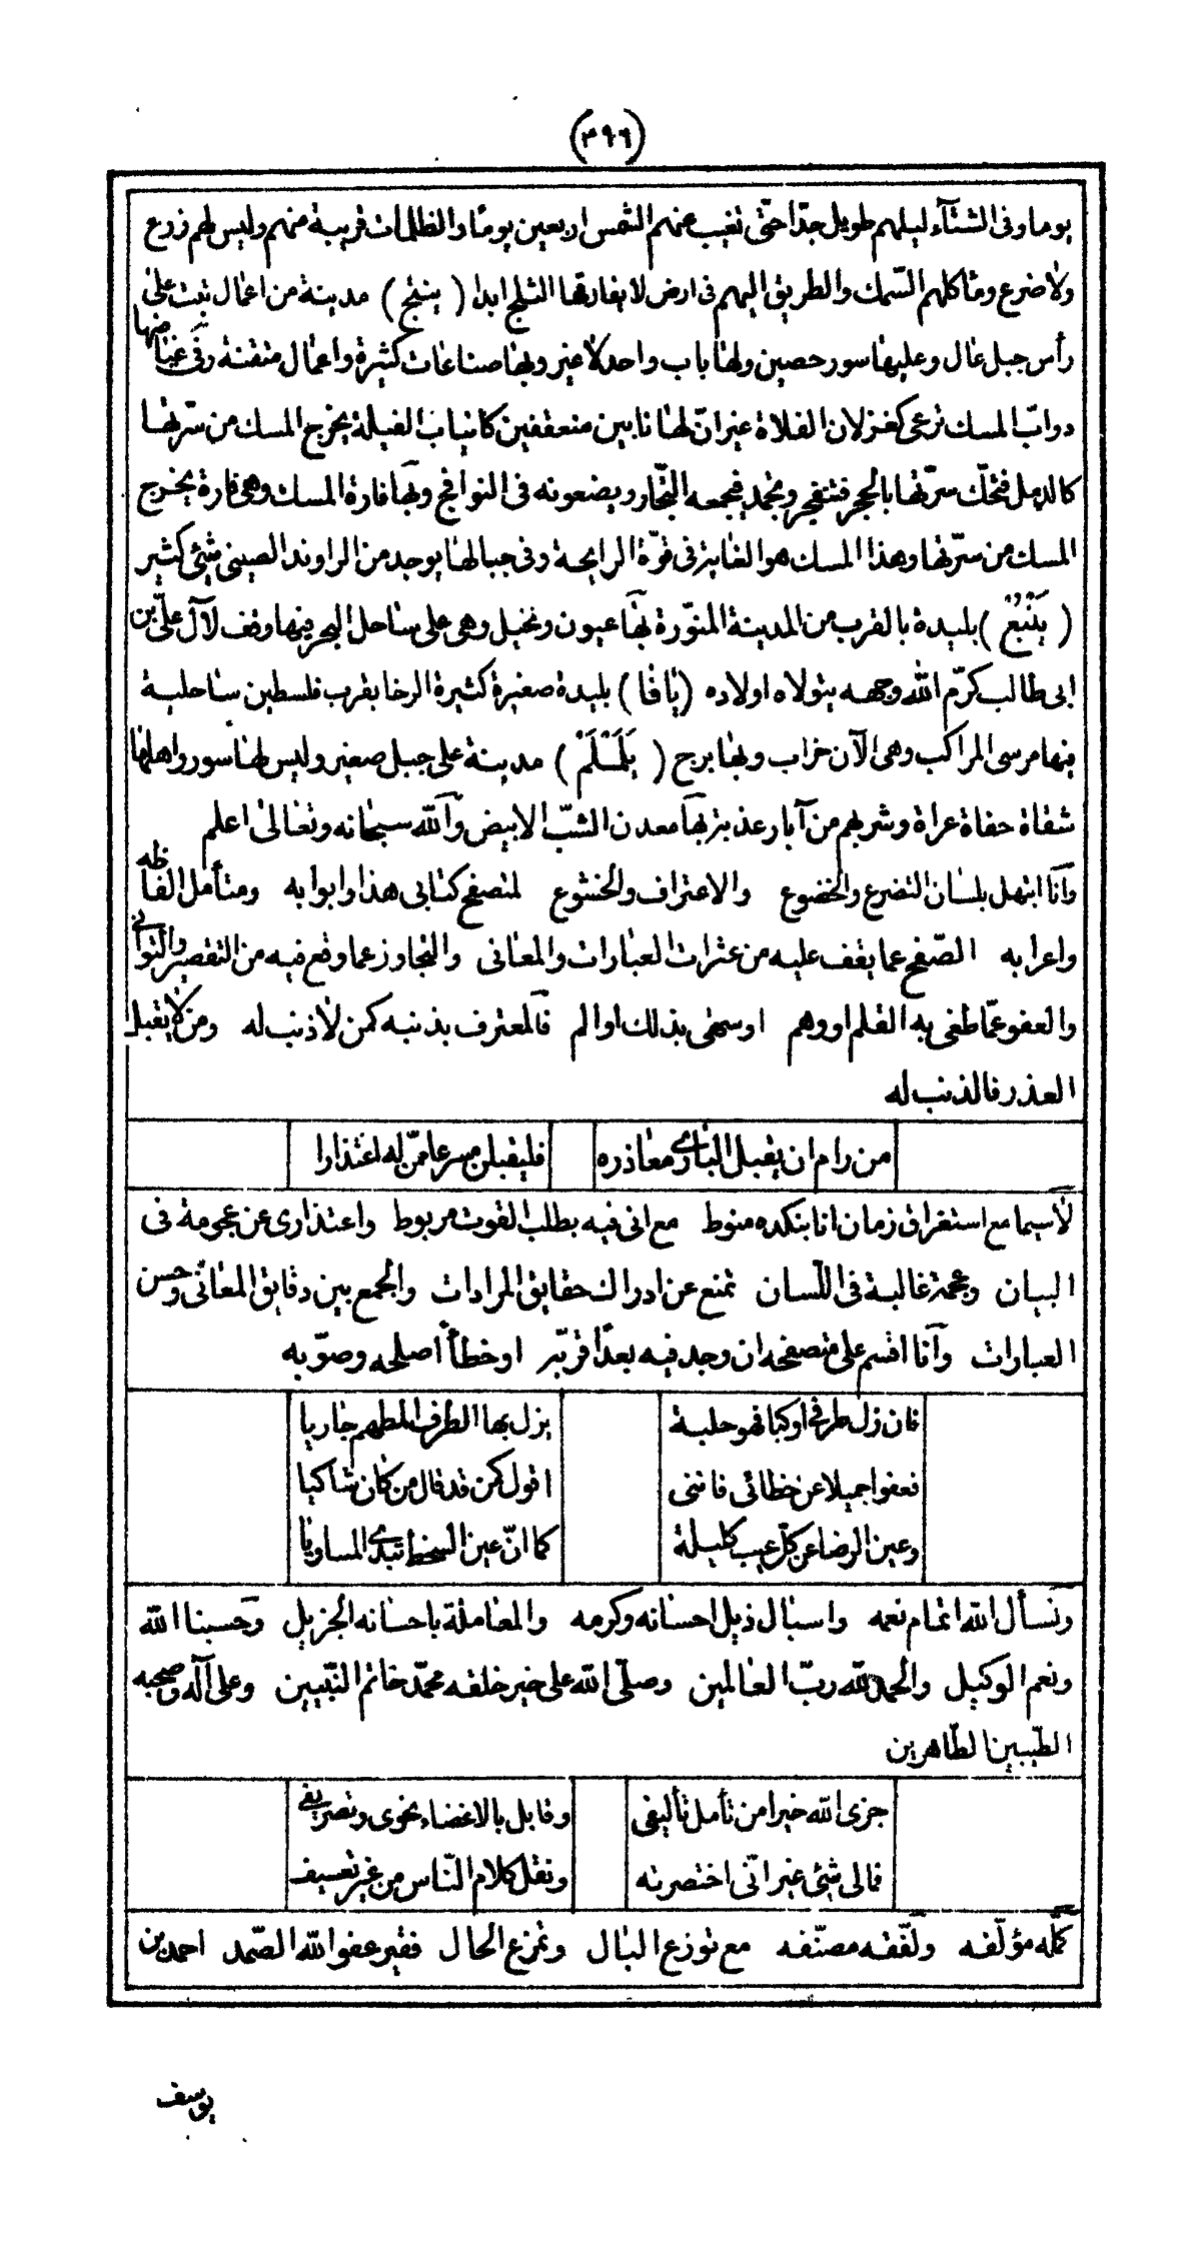 (٤٩٦)
يوما وفى الشتآء ليلهم طويل جدّا حتّى تغيب عنهم الشمس اربعين يوما والظلمات قريبة منهم وليس لهم زرع
ولا ضرع ومأكلهم السّمك والطريق اليهم فى ارض لا يفارقها الثلج ابدا ( ينبج ) مدينة من اعمال تبت على
رأس جبل عال وعليها سور حصين ولها باب واحد لا غير وبها صناعات كثيرة واعمال متقنة وفى غياضها
دوابّ المسك ترعى كغزلان الفلاة غير انّ لها نابين منعقفين كانياب الفيلة يخرج المسك من سرّتها
كالدمل فتحكّ سرّتها بالحجر فتنفجر وتجمد فيجمعه التجّار ويضعونه فى النوافج وبها فارة المسك وهى فارة يخرج
المسك من سرّتها وهذا المسك هو الغاية فى قوّة الرايحة وفى جبالها يوجد من الراوند الصينى شيئ كثير
( يَنْبُعْ ) بليدة بالقرب من المدينة المنوّرة بها عيون ونخيل وهى على ساحل البحر فيها وقف لآل علىّ بن
ابى طالب كرّم الله وجهه يتولاه اولاده (يافا) بليدة صغيرة كثيرة الرخا بقرب فلسطين ساحلية
فيها مرسى المراكب وهى الآن خراب وبها برج ( يَلَمْلَمْ ) مدينة على جبل صغير وليس لها سور واهلها
شقاة حفاة عراة وشربهم من آبار عذبة بها معدن الشبّ الابيض والله سبحانه وتعالى اعلم
وانا ابتهل بلسان التضرع والخضوع والاعتراف والخشوع لمتصفح كتابى هذا وابوابه ومتأمل الفاظه
واعرابه الصّفح عما يقف عليه من عثرات العبارات والمعانى والتجاوز عما وقع فيه من التقصير والتوانى
والعفو عمّا طغى به القلم او وهم او سهى بذلك او الم فالمعترف بذنبه كمن لا ذنب له ومن لا يقبل
العذر فالذنب له
من رام ان يقبل البارى معاذره فليقبلن مسرعا ممّن له اعتذارا
لا سيما مع استغراق زمان انا بنكده منوط مع انى فيه بطلب القوت مربوط واعتذارى عن عجومة فى
البيان وعجمة غالبة فى اللّسان تمنع عن ادراك حقايق المرادات والجمع بين دقايق المعانى وحسن
العبارات وانا اقسم على متصفحه ان وجد فيه بعدًا قرّبه او خطأ اصلحه وصوّبه
فان زل طرفى او كبا فهو حلبة يزل بها الطرف المطهم جاريا
فعفوا جميلا عن خطائى فاننى اقول كمن قد قال من كان شاكيا
وعين الرضا عن كلّ عيب كليلة كما انّ عين السخط تبدى المساويا
ونسأل الله اتمام نعمه واسبال ذيل احسانه وكرمه والمعاملة باحسانه الجزيل وحسبنا الله
ونعم الوكيل والحمد لله ربّ العالمين وصلّى الله على خير خلقه محمّد خاتم النبّيين وعلى آله وصحبه
الطيّبين الطّاهرين
جزى الله خيرا من تأمل تأليفى وقابل بالاغضاء نحوى وتصريفى
فمالى شيئ غير انّى اختصرته ونقل كلام النّاس من غير تعسيف
كمّله مؤلّفه ولفّقه مصنّفه مع توزع البال وتمزع الحال فقير عفو الله الصّمد احمد بن
يوسف